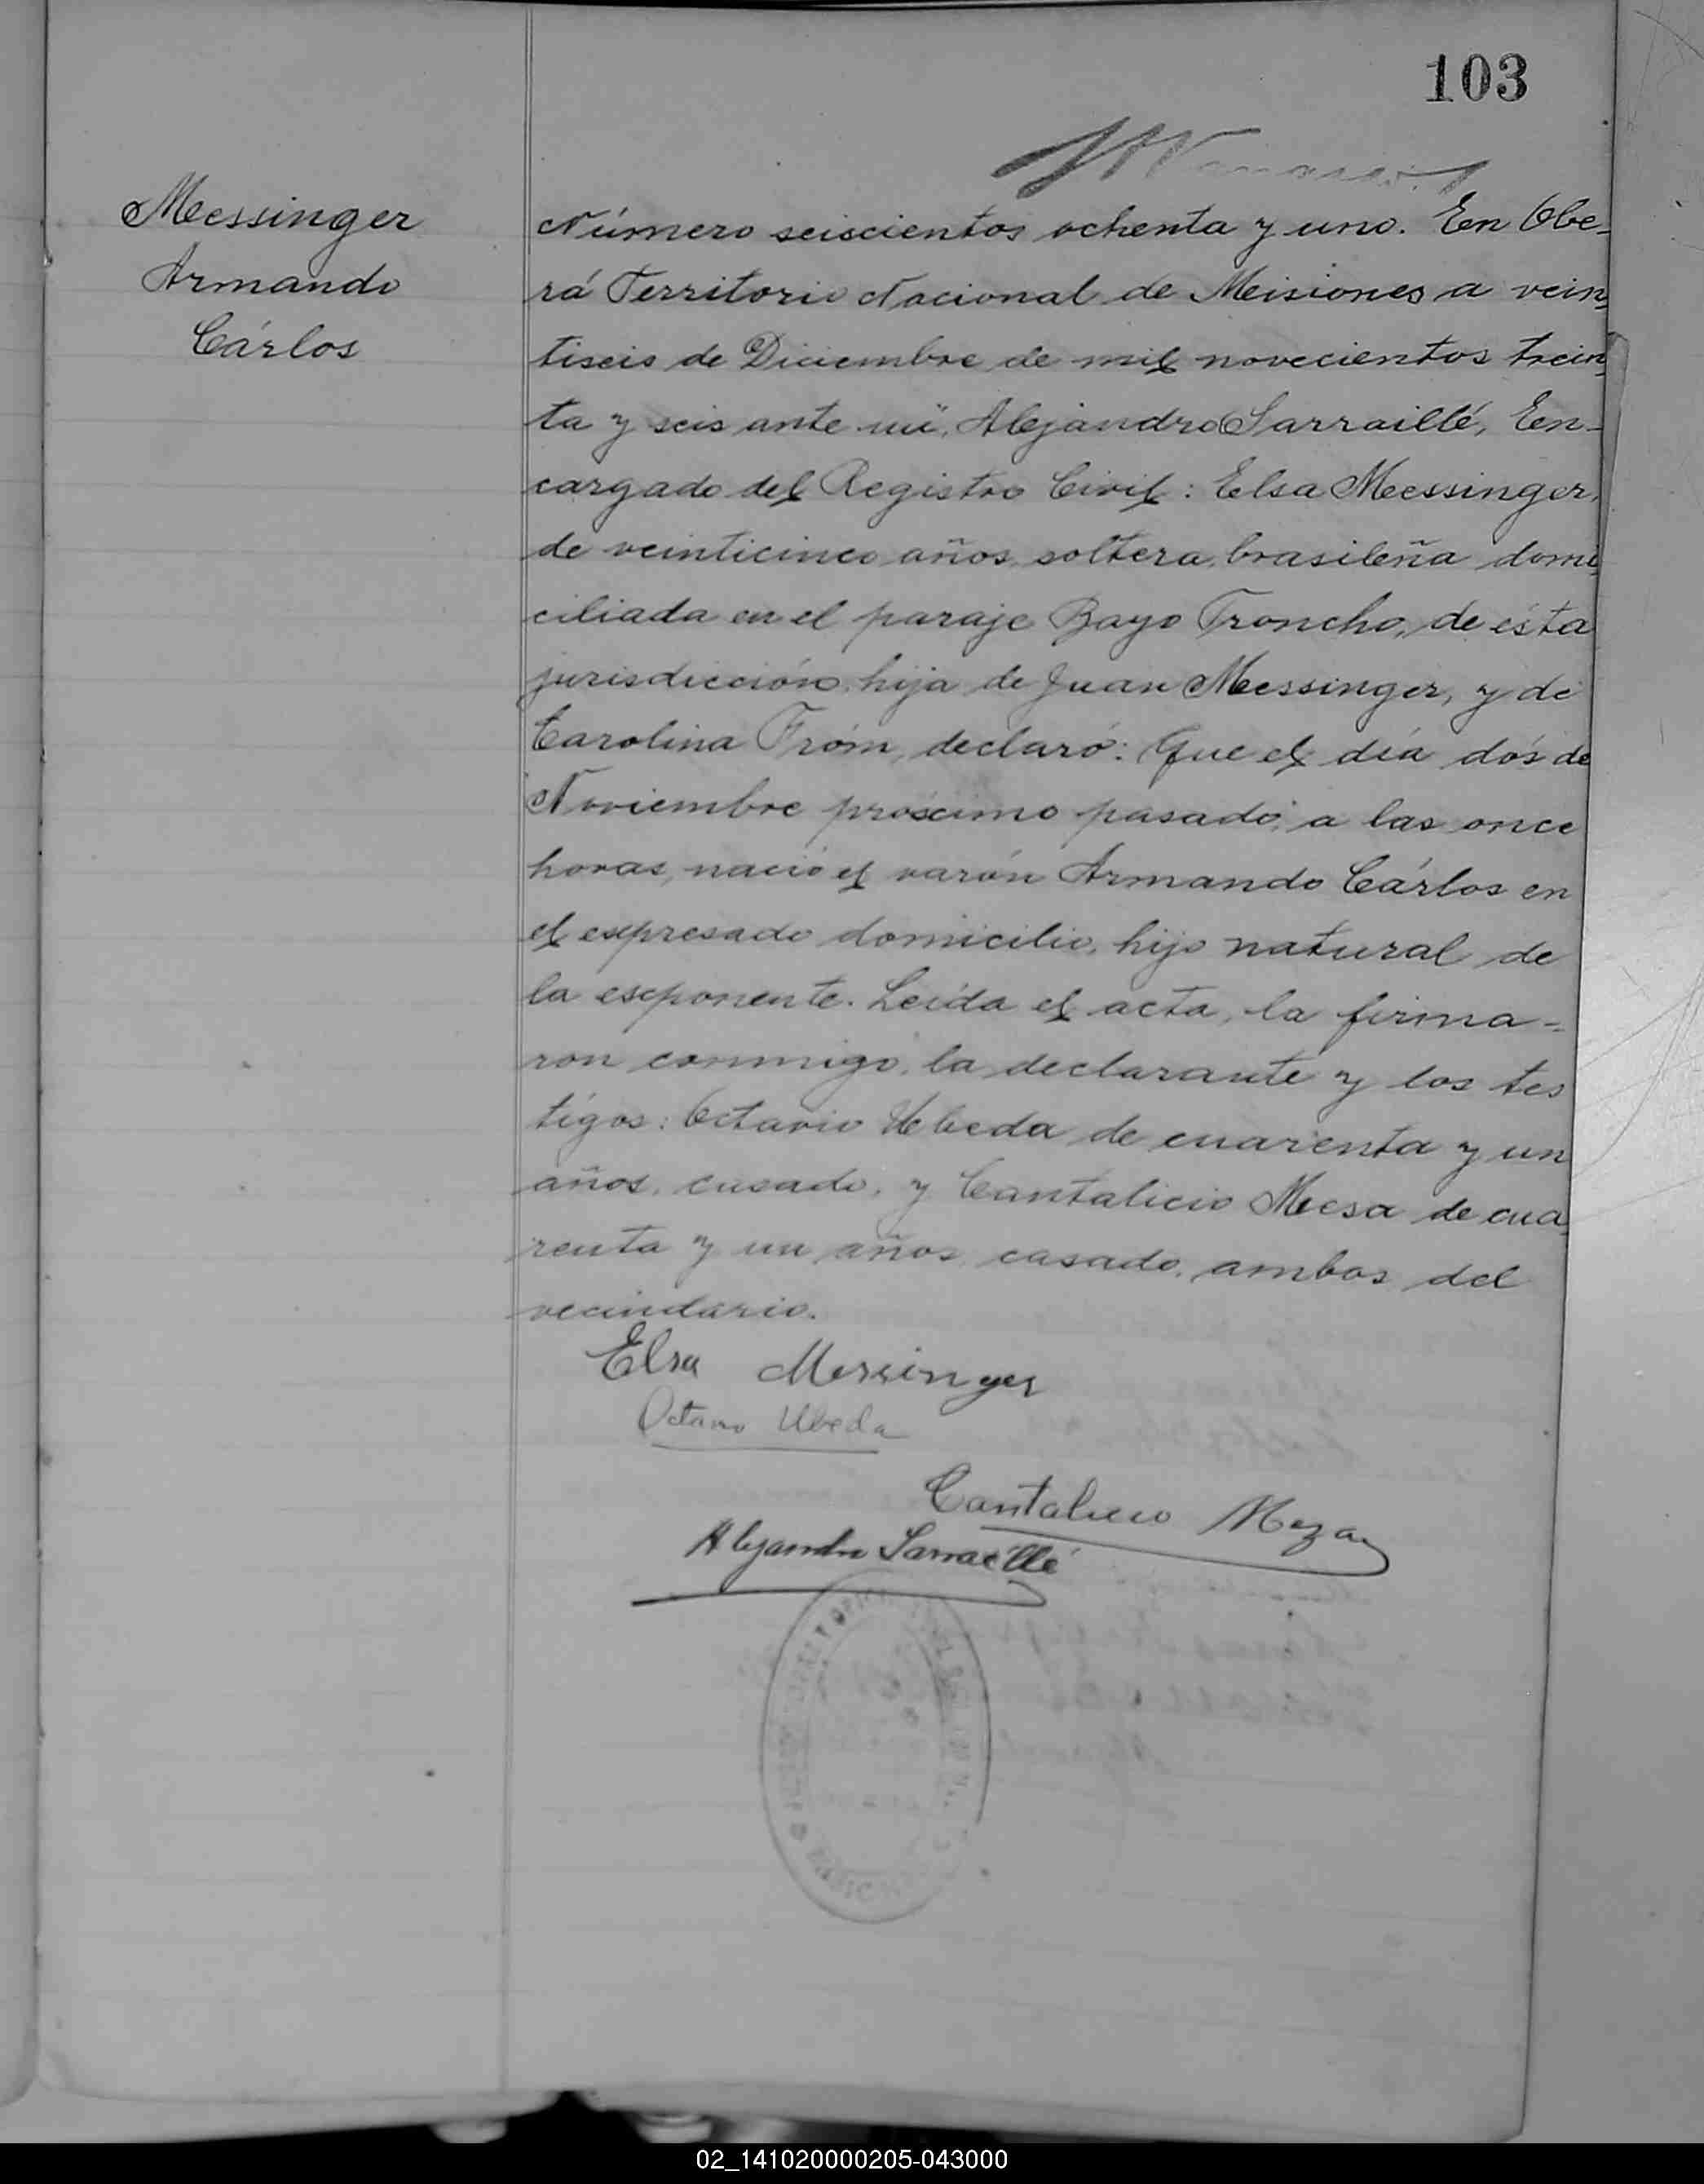 103
Messinger
Armando
Cárlos
Número seiscientos ochenta y uno. En Obe-
rá Territorio Nacional de Misiones a vein
tiseis de Diciembre de mil novecientos trein
ta y seis ante mi, Alejandro Sarraillé, En-
cargado del Registro Civil: Elsa Messinger,
de veinticinco años, soltera, brasileña domi
ciliada en el paraje Bayo Troncho, de ésta
jurisdicción, hija de Juan Messinger, y de
Carolina Tróm, declaró: Que el día dós de
Noviembre próximo pasado, a las once
horas, nació el varón Armando Cárlos en
el expresado domicilio, hijo natural de
la exponente. Leída el acta, la firma-
ron conmigo, la declarante y los tes
tigos: Octavio Ubeda de cuarenta y un
años, casado, y Cantalicio Mesa de cua
renta y un años, casado, ambos del
vecindario.
Elsa Messinger
Octavio Ubeda
Cantalicio Meza
Alejandro Sarraillé
02_141020000205-043000